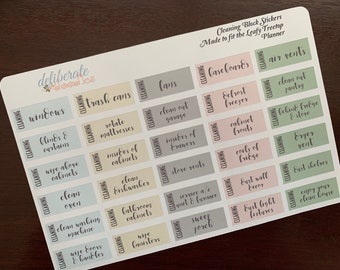 deliberate
Cleaning Block Stickers
Made to fit the Leafy Treetop
Planner
CLEANING windows
CLEANING trash cans
CLEANING fans
CLEANING baseboards
CLEANING air vents
CLEANING blinds &
curtains
CLEANING rotate
mattresses
CLEANING clean out
garage
CLEANING defrost
freezer
CLEANING clean out
pantry
CLEANING wipe above
cabinets
CLEANING insides of
cabinets
CLEANING insides of
drawers
CLEANING cabinet
fronts
CLEANING behind fridge
& stove
CLEANING clean
oven
CLEANING clean
dishwasher
CLEANING stove vents
CLEANING coils of
fridge
CLEANING dryer
vent
CLEANING clean washing
machine
CLEANING bathroom
cabinets
CLEANING service a/c
unit & furnace
CLEANING dust wall
decor
CLEANING dust shelves
CLEANING wipe doors
& handles
CLEANING wipe
banisters
CLEANING sweep
porch
CLEANING dust light
fixtures
CLEANING enjoy your
clean house